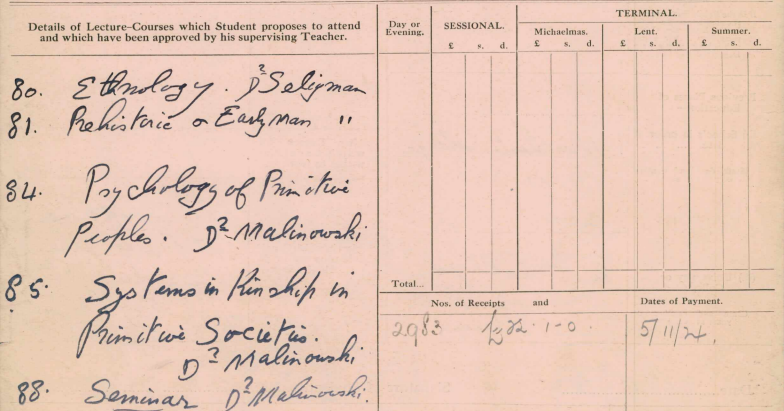 Details of Lecture-Courses which Student proposes to attend
and which have been approved by his supervising Teacher.
Day or
Evening.
SESSIONAL.
£ s. d.
TERMINAL.
Michaelmas. Lent. Summer.
£ s. d. £ s. d. £ s. d.
80. Ethnology. Dr Seligman
81. Prehistoric or Early Man "
84. Psychology of Primitive
Peoples. Dr Malinowski
85. Systems in Kinship in
Primitive Societies.
Dr Malinowski
88. Seminar Dr Malinowski.
Total...
Nos. of Receipts and Dates of Payment.
2983 1-0. 5/11/24.